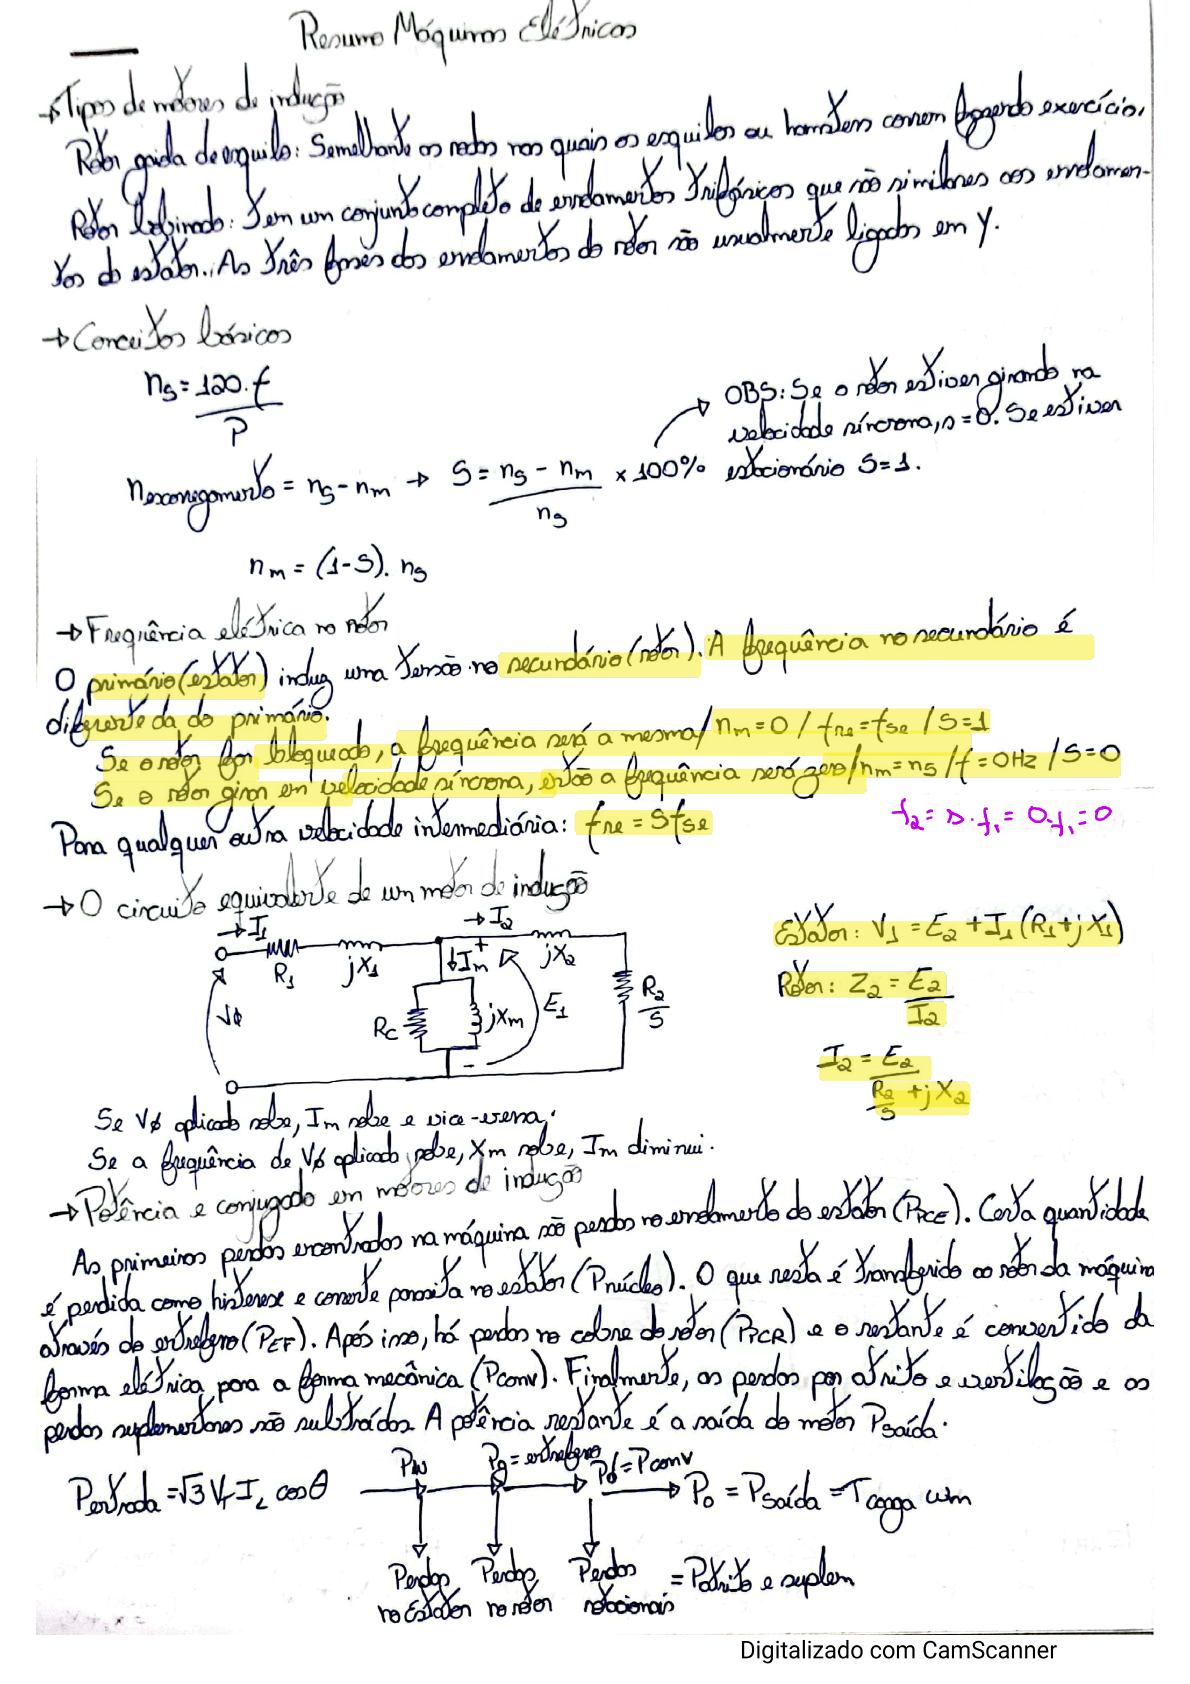 Resumo Máquinas Elétricas
→ Tipos de motores de indução
Rotor gaiola de esquilo: Semelhante as rodas nas quais os esquilos ou hamsters correm fazendo exercício.
Rotor bobinado: Tem um conjunto completo de enrolamentos trifásicos que são similares aos enrolamen-
tos do estator. As três fases dos enrolamentos do rotor são usualmente ligados em Y.
→ Conceitos básicos
ns = 120.f / P
OBS: Se o rotor estiver girando na
velocidade síncrona, s=0. Se estiver
estacionário S=1.
nescorregamento = ns - nm → S = ns - nm / ns x 100%
nm = (1-S). ns
→ Frequência elétrica no rotor
O primário (estator) induz uma tensão no secundário (rotor). A frequência no secundário é
diferente da do primário.
Se o rotor for bloqueado, a frequência será a mesma / nm=0 / fre=fse / S=1
Se o rotor girar em velocidade síncrona, então a frequência será zero / nm=ns / f=0Hz / S=0
Para qualquer outra velocidade intermediária: fre = Sfse
f2 = s.f1 = 0.f1 = 0
→ O circuito equivalente de um motor de indução
→ I1
→ I2
R1
jX1
Im
+
jX2
Vφ
Rc
jXm
E1
R2/S
-
Estator: V1 = E2 + I1 (R1 + jX1)
Rotor: Z2 = E2 / I2
I2 = E2 / (R2/S + jX2)
Se Vφ aplicado sobe, Im sobe e vice-versa.
Se a frequência de Vφ aplicado sobe, Xm sobe, Im diminui.
→ Potência e conjugado em motores de indução
As primeiras perdas encontradas na máquina são perdas no enrolamento do estator (PPCE). Certa quantidade
é perdida como histerese e corrente parasita no estator (Pnúcleo). O que resta é transferido ao rotor da máquina
através do entreferro (PEF). Após isso, há perdas no cobre do rotor (PPCR) e o restante é convertido da
forma elétrica para a forma mecânica (Pconv). Finalmente, as perdas por atrito e ventilação e as
perdas suplementares são subtraídas. A potência restante é a saída do motor Psaída.
Pentrada = √3 VT IL cosθ
Pin
Pg = entreferro
Pd = Pconv
Po = Psaída = Tcarga wm
Perdas no Estator
Perdas no rotor
Perdas rotacionais
= Patrito e suplem
Digitalizado com CamScanner